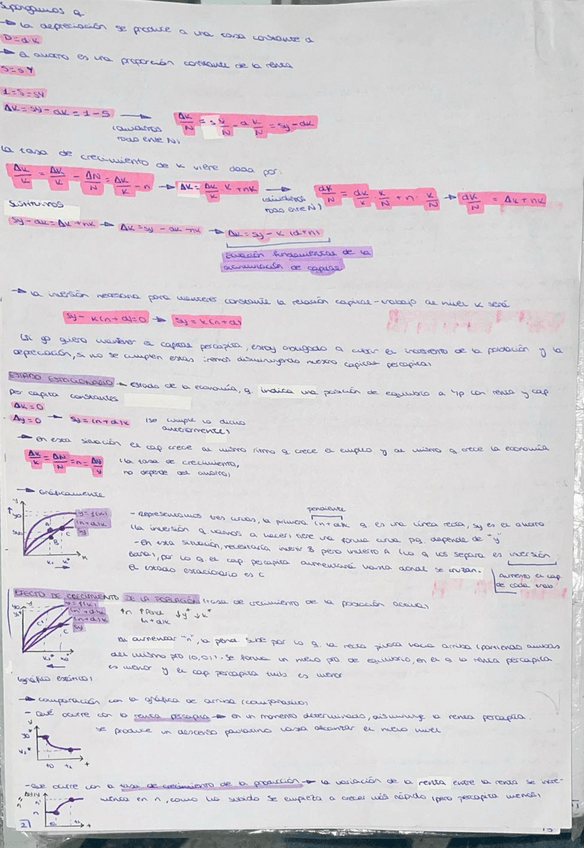 Supongamos q.
→ La depreciación se produce a una tasa constante d
D = d·K
→ El ahorro es una proporción constante de la renta
S = sY
I = S = sY
ΔK = sY - dK = I - S → ΔK/N = s Y/N - d K/N = sy - dk
(dividimos todo entre N)
La tasa de crecimiento de k viene dada por:
Δk/k = ΔK/K - ΔN/N = ΔK/K - n → ΔK = Δk/k K + nK → ΔK/N = Δk/k K/N + n · K/N → ΔK/N = Δk + nk
(dividimos todo entre N)
Sustituimos
sy - dk = Δk + nk → Δk = sy - dk - nk → Δk = sy - k (d+n)
Ecuación fundamental de la
acumulación de capital
→ La inversión necesaria para mantener constante la relación capital-trabajo al nivel k será
sy - k(n+d) = 0 → sy = k(n+d)
Si yo quiero mantener el capital percapita, estoy obligado a cubrir el incremento de la población y la
depreciación, si no se cumplen estas iremos disminuyendo nuestro capital percapita)
ESTADO ESTACIONARIO → estado de la economía, q. indica una posición de equilibrio a l/p con renta y cap
per capita constantes
Δk = 0
Δy = 0 → sy = (n+d)k (se cumple lo dicho anteriormente)
→ En esta situación el cap crece al mismo ritmo q crece el empleo y al mismo q crece la economía
ΔK/K = ΔN/N = n = ΔY/Y (La tasa de crecimiento, no depende del ahorro)
→ Gráficamente
y = f(k)
(n+d)k
sy
- Representamos tres curvas, la primera (n+d)k q. es una línea recta, sy es el ahorro
pendiente
(la inversión q vamos a hacer) tiene una forma curva pq depende de "y"
- En esta situación, necesitaría invertir B pero invierto A (lo q los separa es inversión
, por lo q el cap percapita aumentará hasta donde se juntan.
El estado estacionario es C
Aumento el cap
de cada uno
EFECTO DE CRECIMIENTO DE LA POBLACIÓN (tasa de crecimiento de la población activa)
↑n ↑Pend ↓y* ↓k*
n+d)k
Al aumentar "n", la pend sube por lo q. la recta pivota hacia arriba (partiendo ambas
del mismo pto (0,0)). Se forma un nuevo pto de equilibrio, en el q la renta percapita
es menor y el cap percapita tmb es menor
→ Comparación con la gráfica de arriba (comparativa)
- Qué ocurre con la renta percapita → en un momento determinado, disminuye la renta percapita.
se produce un descenso paulatino hasta alcanzar el nuevo nivel
- Qué ocurre con la tasa de crecimiento de la producción → la variación de la renta entre la renta se incre-
menta en n, como ha subido se empieza a crecer más rápido (pero percapita menos)
2